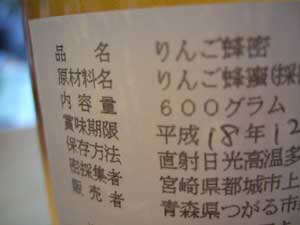 品名 りんご蜂密
原材料名 りんご蜂蜜(採
内容量 600グラム
賞味期限 平成18年12
保存方法 直射日光高温多
密採集者 宮崎県都城市上
販売者 青森県つがる市